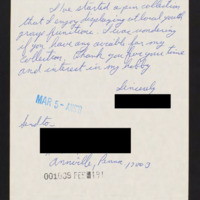 I've started a pin collection
that I enjoy displaying at local youth
group functions. I was wondering
if you have any available for my
collection. Thank you for your time
and interest in my hobby
Sincerely
MAR 5
Send to
Annville, Penna 17003
001635 FEB